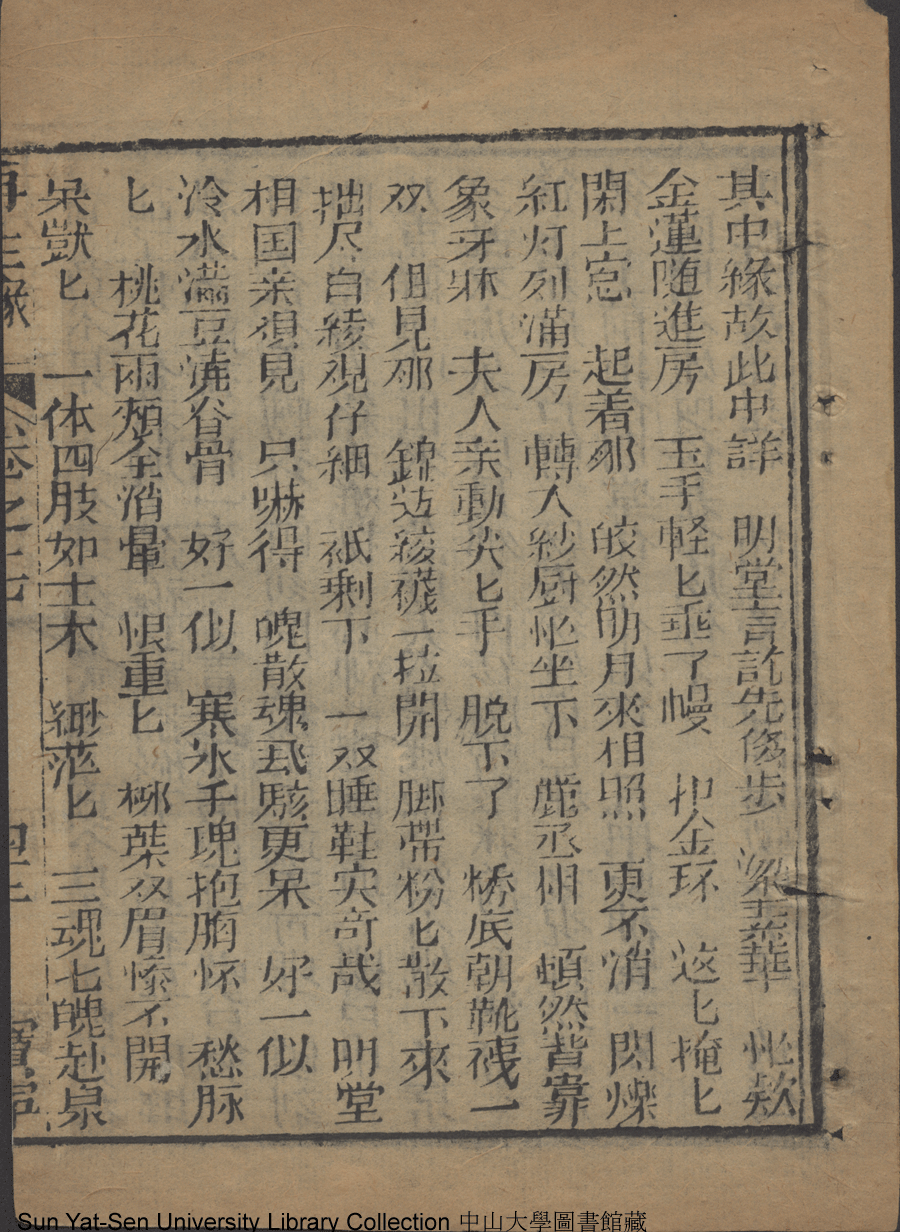 其中緣故此中詳　明堂言訖先移步　梁素華　忙款
金蓮随進房　玉手軽匕垂了幔　扣金环　返匕掩匕
閑上窓　起着那　皎然明月來相照　更不消　閃爍
紅灯列滿房　轉入紗厨忙坐下　麗丞相　頓然背靠
象牙牀　夫人亲動尖匕手　脱下了　粉底朝靴襪一
双　但見那　錦边綾襪一拉開　脚帶粉匕散下來
拙尽白綾視仔細　衹剩下　一双睡鞋实奇哉　明堂
相国亲視見　只嚇得　魄散魂飛駭更呆　好一似
冷水滿豆澆脊骨　好一似　寒氷千瑰抱胸怀　愁脉
匕　桃花兩頰全消暈　恨重匕　柳葉双眉慘不開
呆獃匕　一体四肢如土木　緲茫匕　三魂七魄赴泉
再生緣　卷之十七　四十三　寳寧
Sun Yat-Sen University Library Collection 中山大學圖書館藏